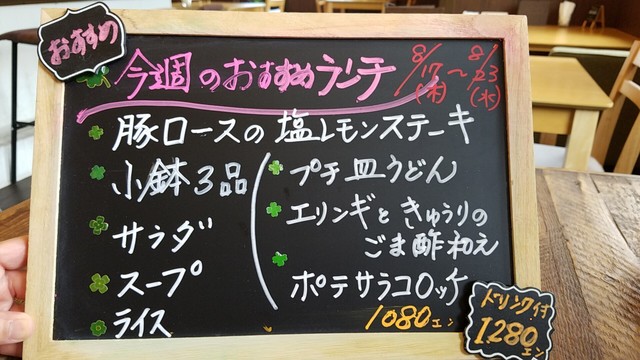 おすすめ
今週のおすすめランチ
8/17(木)～8/23(水)
豚ロースの塩レモンステーキ
小鉢3品
サラダ
スープ
ライス
プチ皿うどん
エリンギときゅうりの
ごま酢和え
ポテサラコロッケ
1080エン
ドリンク付
1280エン